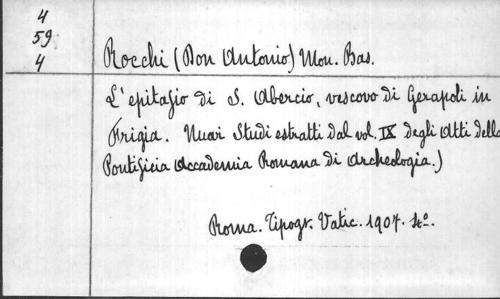 4
59
4
Rocchi (Don Antonio) Mon. Bas.
L'epitafio di S. Abercio, vescovo di Gerapoli in
Frigia. Nuovi Studi estratti dal vol. IX degli Atti della
Pontificia Accademia Romana di Archeologia.)
Roma. Tipogr. Vatic. 1907. 4º.